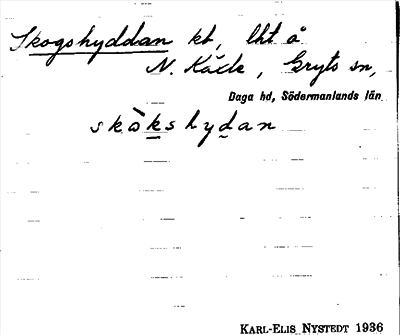 Skogshyddan kt, lht å
N. Kärle, Gryts sn,
Daga hd, Södermanlands län
skò̀kshydan
KARL-ELIS NYSTEDT 1936